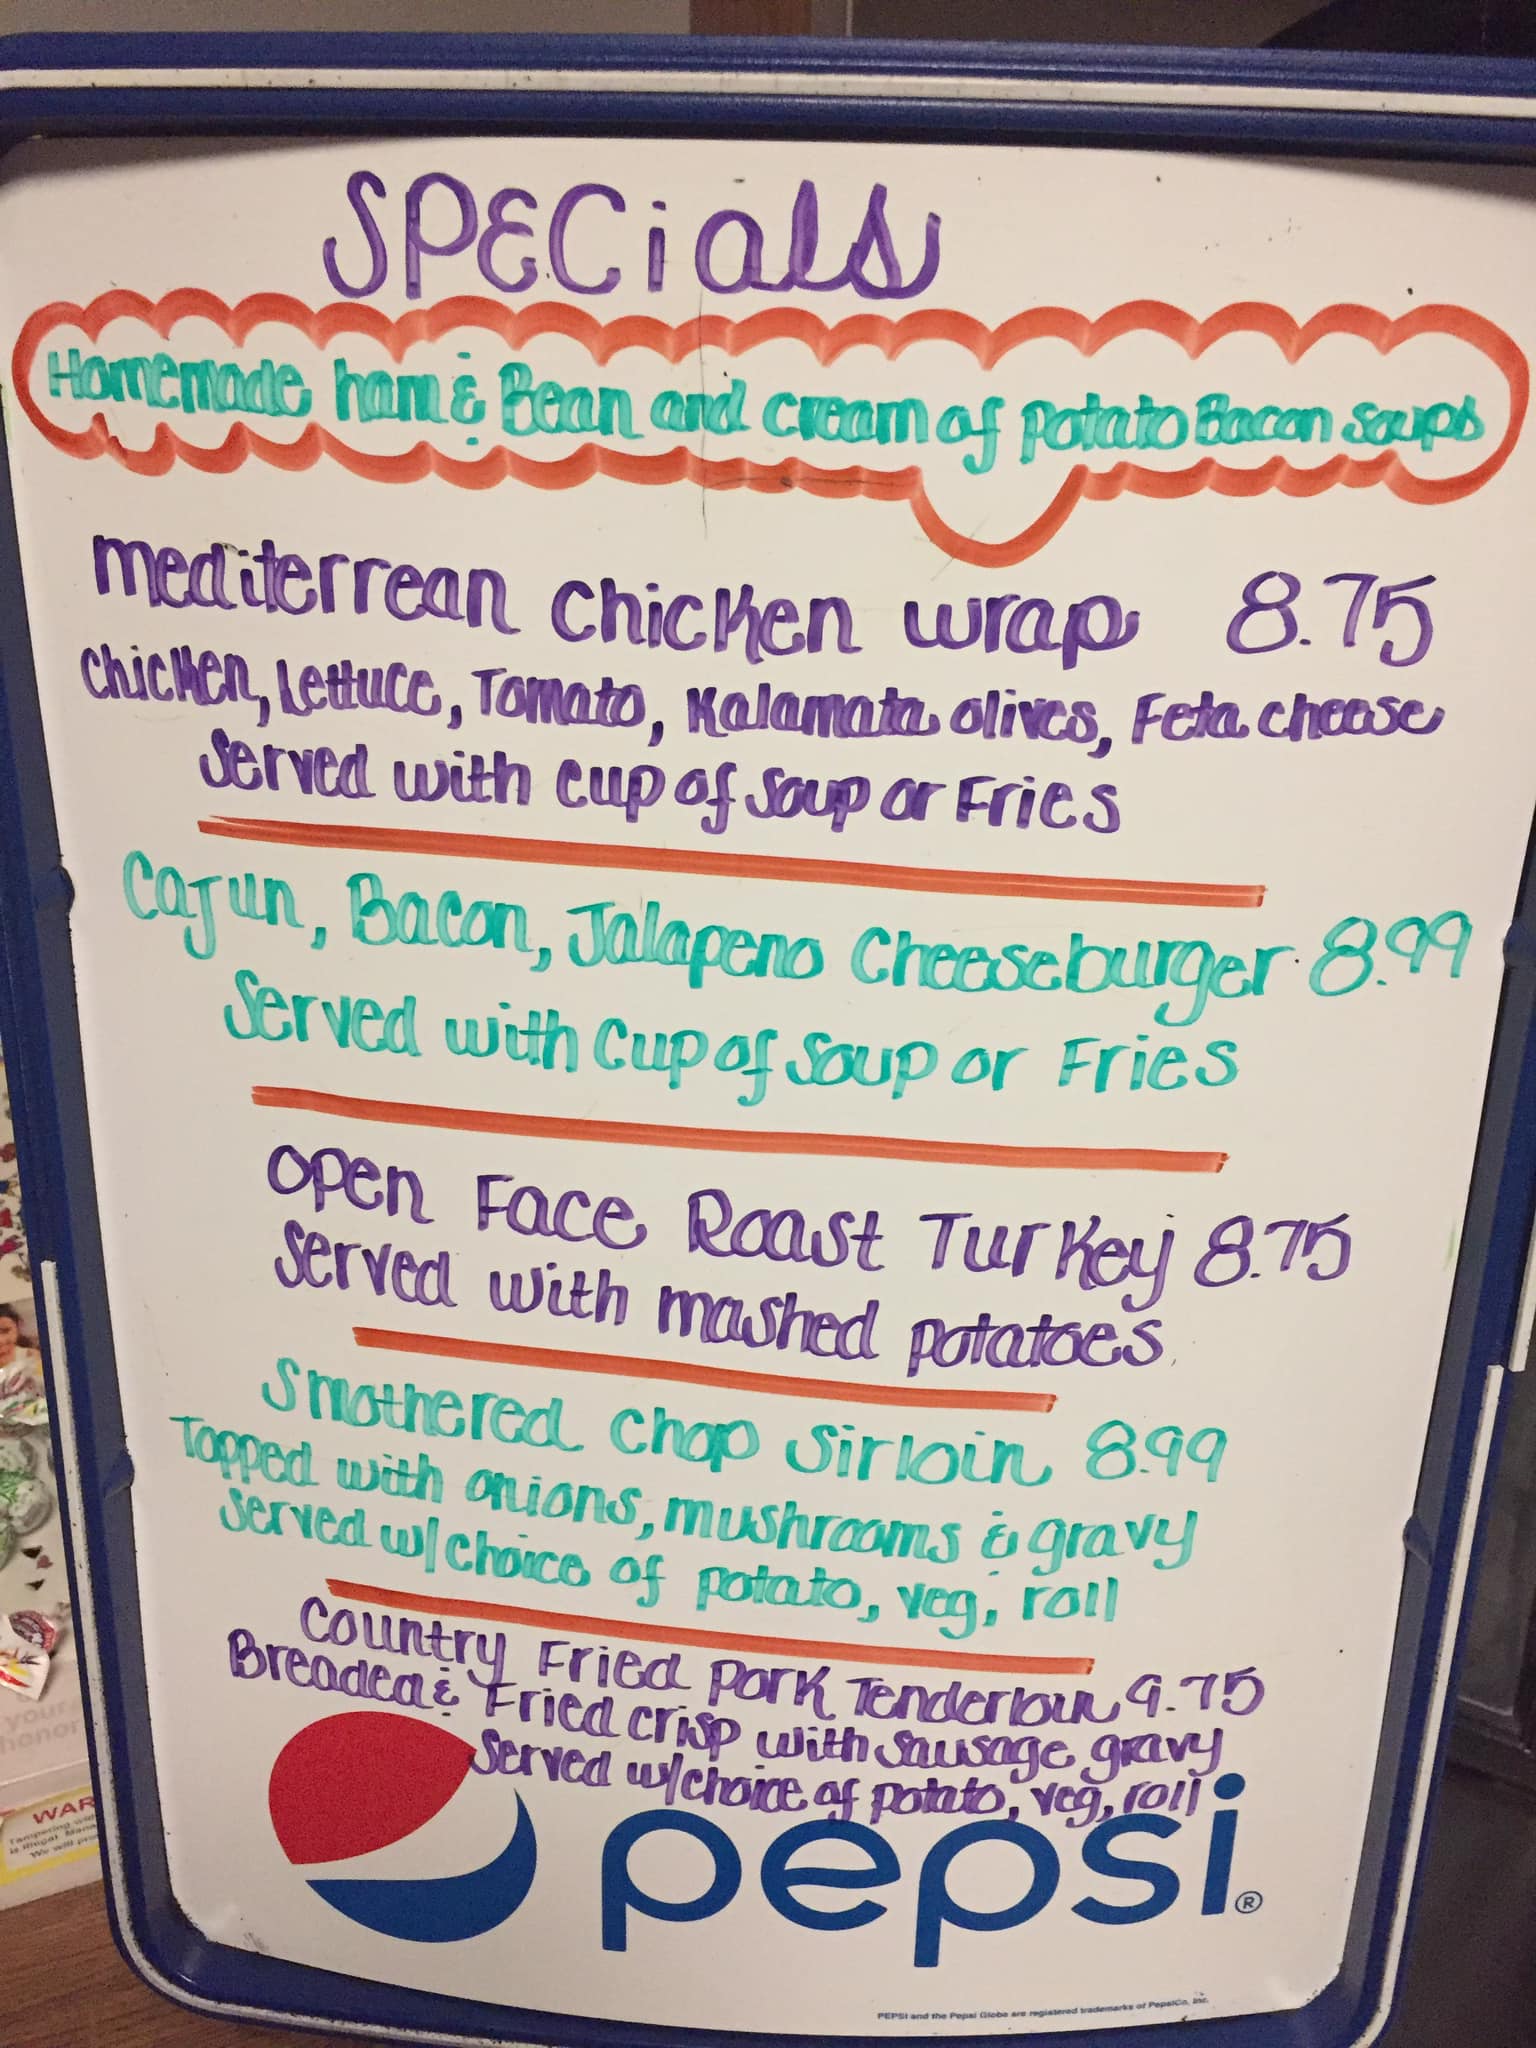 SPECials
Homemade ham & Bean and cream of potato Bacon soups
mediterrean chicken wrap 8.75
chicken, Lettuce, Tomato, Kalamata olives, Feta cheese
Served with cup of soup or Fries
Cajun, Bacon, Jalapeno Cheeseburger 8.99
Served with cup of soup or Fries
open Face Roast Turkey 8.75
Served with mashed potatoes
Smothered Chop Sirloin 8.99
Topped with onions, mushrooms & gravy
Served w/choice of potato, veg, roll
Country Fried Pork Tenderloin 9.75
Breaded & Fried crisp with sausage gravy
Served w/choice of potato, veg, roll
pepsi®
PEPSI and the Pepsi Globe are registered trademarks of PepsiCo, Inc.
your
honor
WAR
Tampering
is illegal.
We will